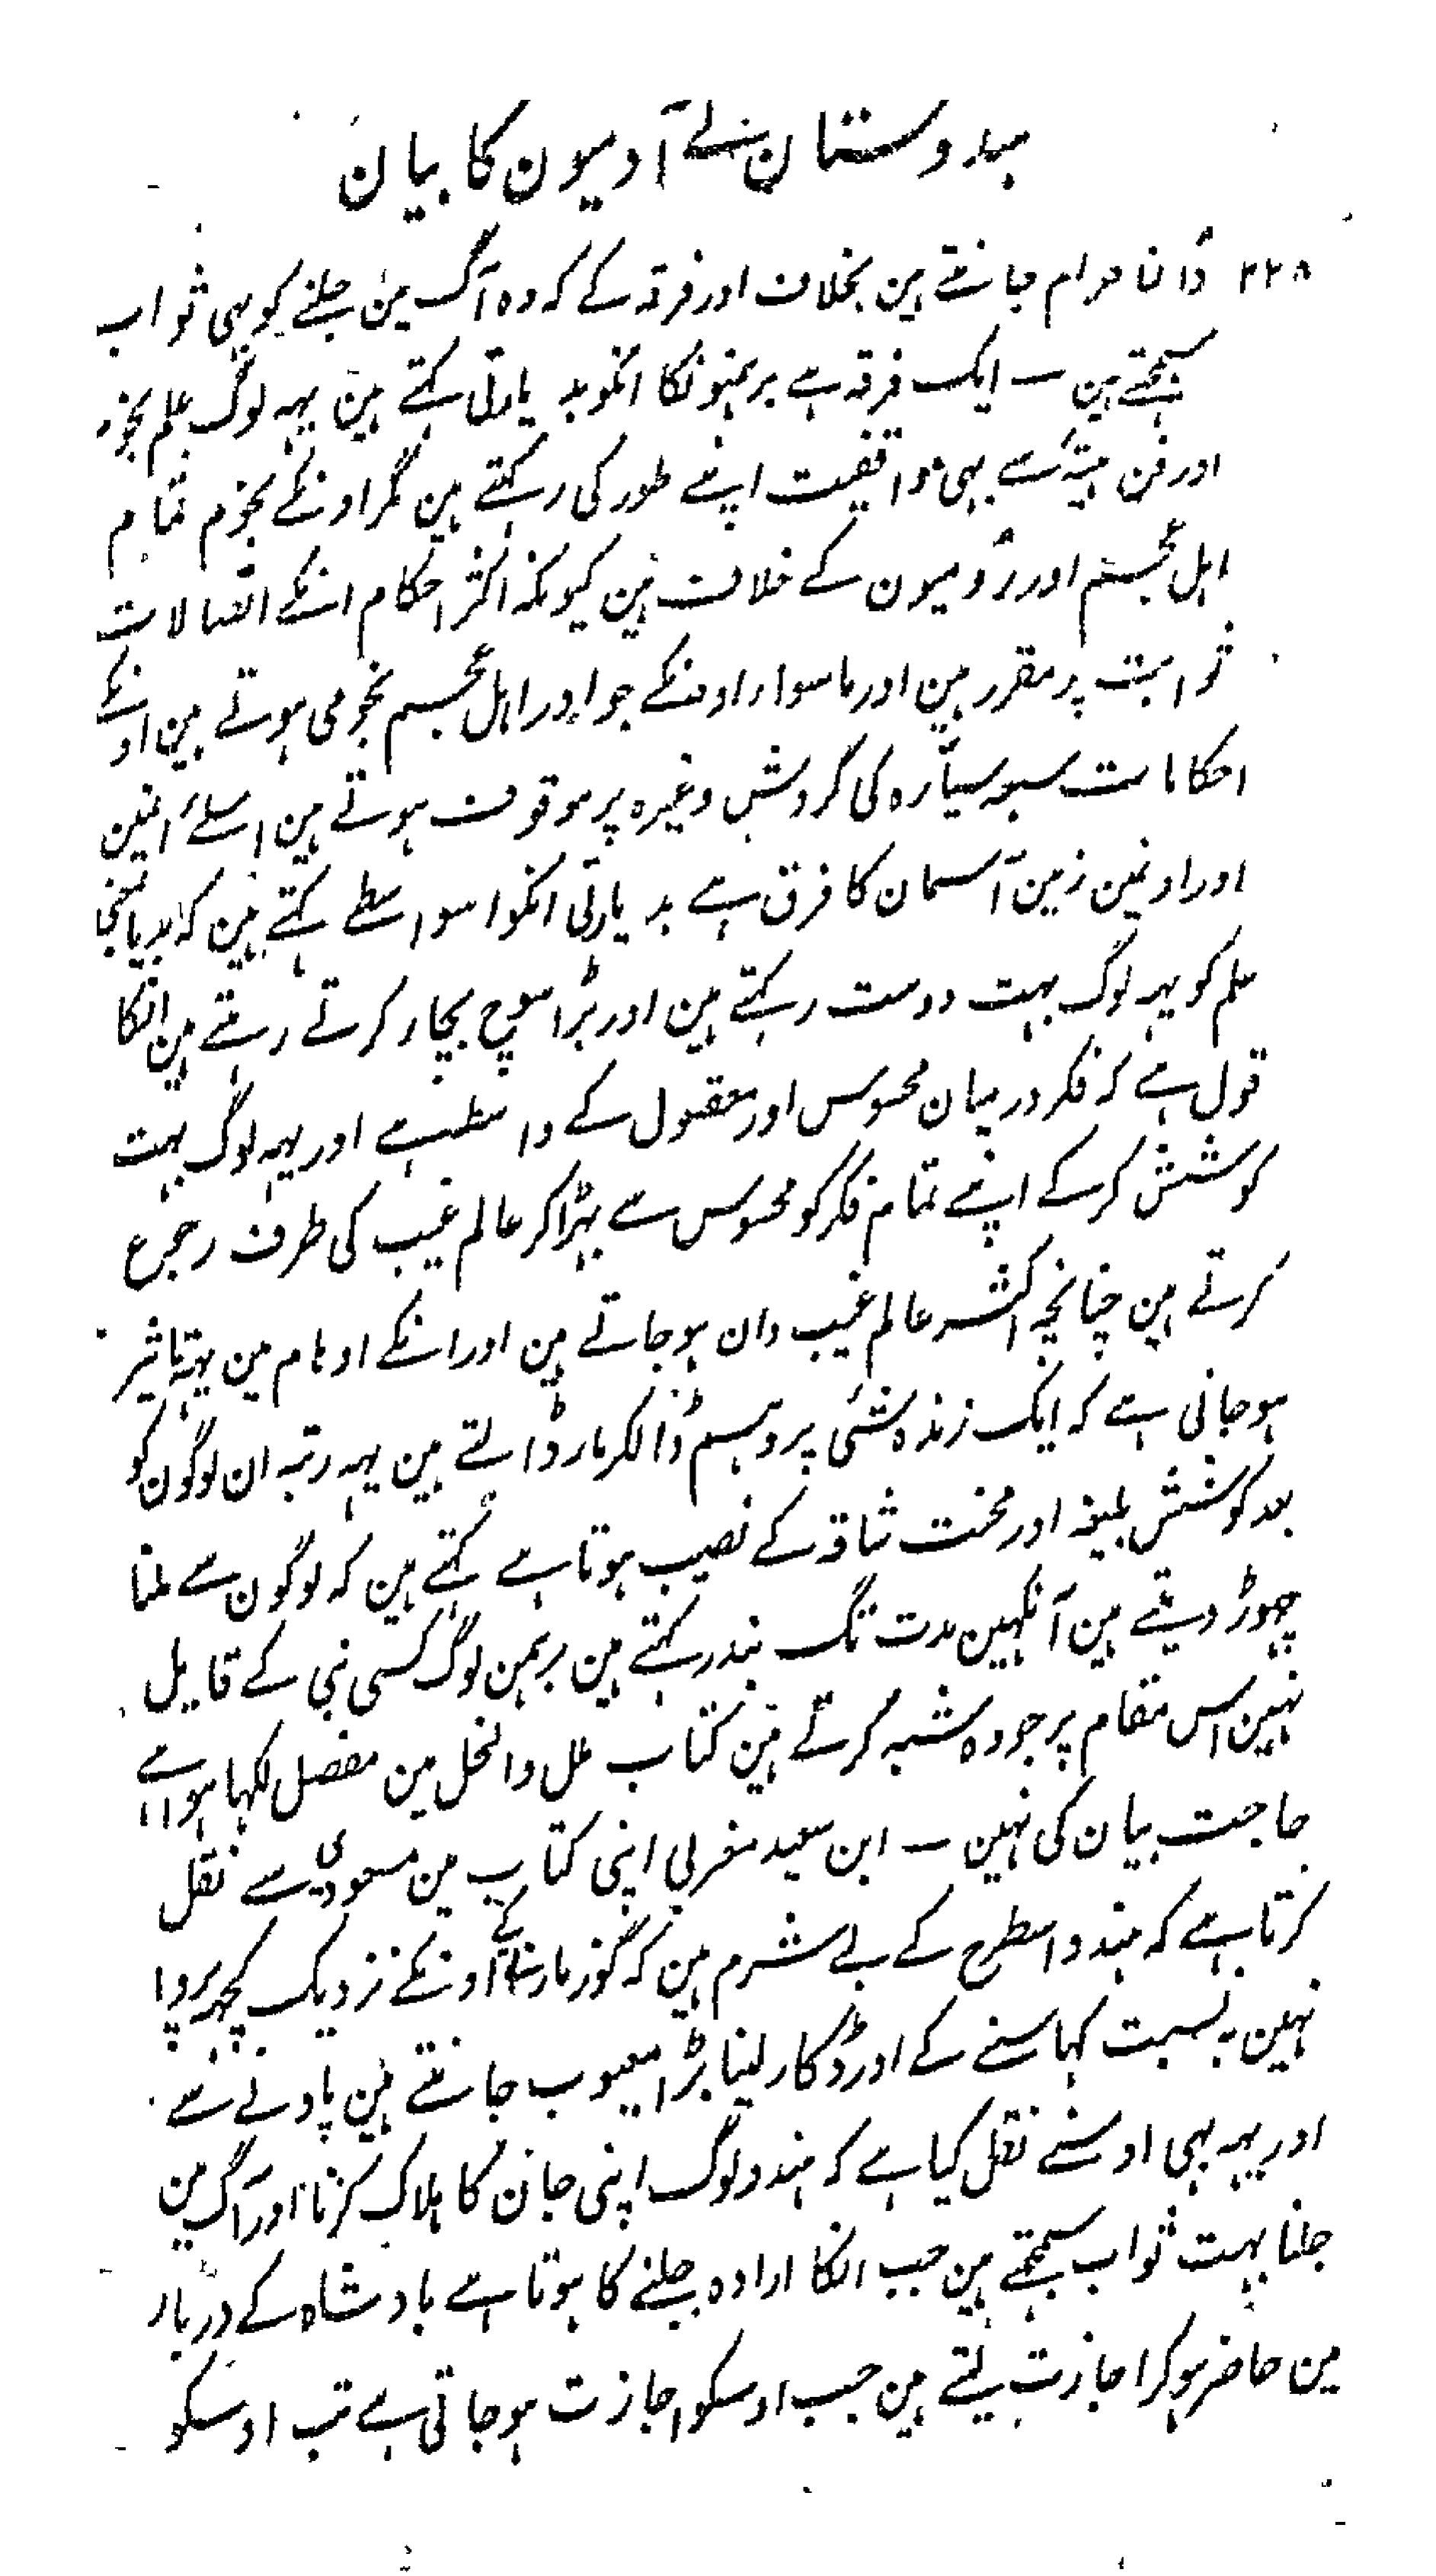 ہندوستان کے آدمیون کا بیان
۲۲۸ ڈانا حرام جانتے ہین بخلاف اور فرقہ کے کہ وہ آگ مین جلنے کو بہی ثواب
سمجہتے ہین ــ ایک فرقہ ہے برہمنونکا انکو بد یارتی کہتے ہین یہہ لوگ علم نجوم
اور فن ہیئت سے بہی واقفیت اپنے طور کی رکہتے ہین مگر اونکے نجوم تمام
اہل عجم اور رومیون کے خلاف ہین کیونکہ اکثر احکام انکے اتصالات
ثوابت پر مقرر ہین اور ماسوا اونکے جو اور اہل عجم نجومی ہوتے ہین اونکے
احکامات سبعہ سیّارہ کی گردش وغیرہ پر موقوف ہوتے ہین اسلئے انمین
اور اونمین زمین آسمان کا فرق ہے بد یارتی انکو اسواسطے کہتے ہین کہ بدیا یعنی
علم کو یہہ لوگ بہت دوست رکہتے ہین اور بڑا سوچ بچار کرتے رہتے ہین انکا
قول ہے کہ فکر درمیان محسوس اور معقول کے واسطہ ہے اور یہہ لوگ بہت
کوشش کرکے اپنے تمام فکر کو محسوس سے ہٹرا کر عالم غیب کی طرف رجوع
کرتے ہین چنانچہ اکثر عالم غیب دان ہوجاتے ہین اور انکے اوہام مین یہہ تاثیر
ہوجاتی ہے کہ ایک زندہ شئی پر وہم ڈالکر مار ڈالتے ہین یہہ رتبہ ان لوگون کو
بعد کوشش بلیغہ اور محنت شاقہ کے نصیب ہوتا ہے کہتے ہین کہ لوگون سے ملنا
چہوڑ دیتے ہین آنکہین مدت تک بند رکہتے ہین برہمن لوگ کسی نبی کے قایل
نہین اس مقام پر جو وہ شبہ کرتے ہین کتاب ملل والنحل مین مفصل لکہا ہوا ہے
حاجت بیان کی نہین ــ ابن سعید مغربی اپنی کتاب مین مسعودی سے نقل
کرتا ہے کہ ہندو اسطرح کے بے شرم ہین کہ گوز مارنے کے اونکے نزدیک کچہہ پروا
نہین بہ نسبت کہانسنے کے اور ڈکار لینا بڑا معیوب جانتے ہین پادنے سے
اور یہہ بہی اوسنے نقل کیا ہے کہ ہندو لوگ اپنی جان کا ہلاک کرنا اور آگ مین
جلنا بہت ثواب سمجہتے ہین جب انکا ارادہ جلنے کا ہوتا ہے بادشاہ کے دربار
مین حاضر ہوکر اجازت لیتے ہین جب اوسکو اجازت ہوجاتی ہے تب اوسکو